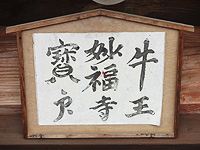 牛王
妙福寺
寳印